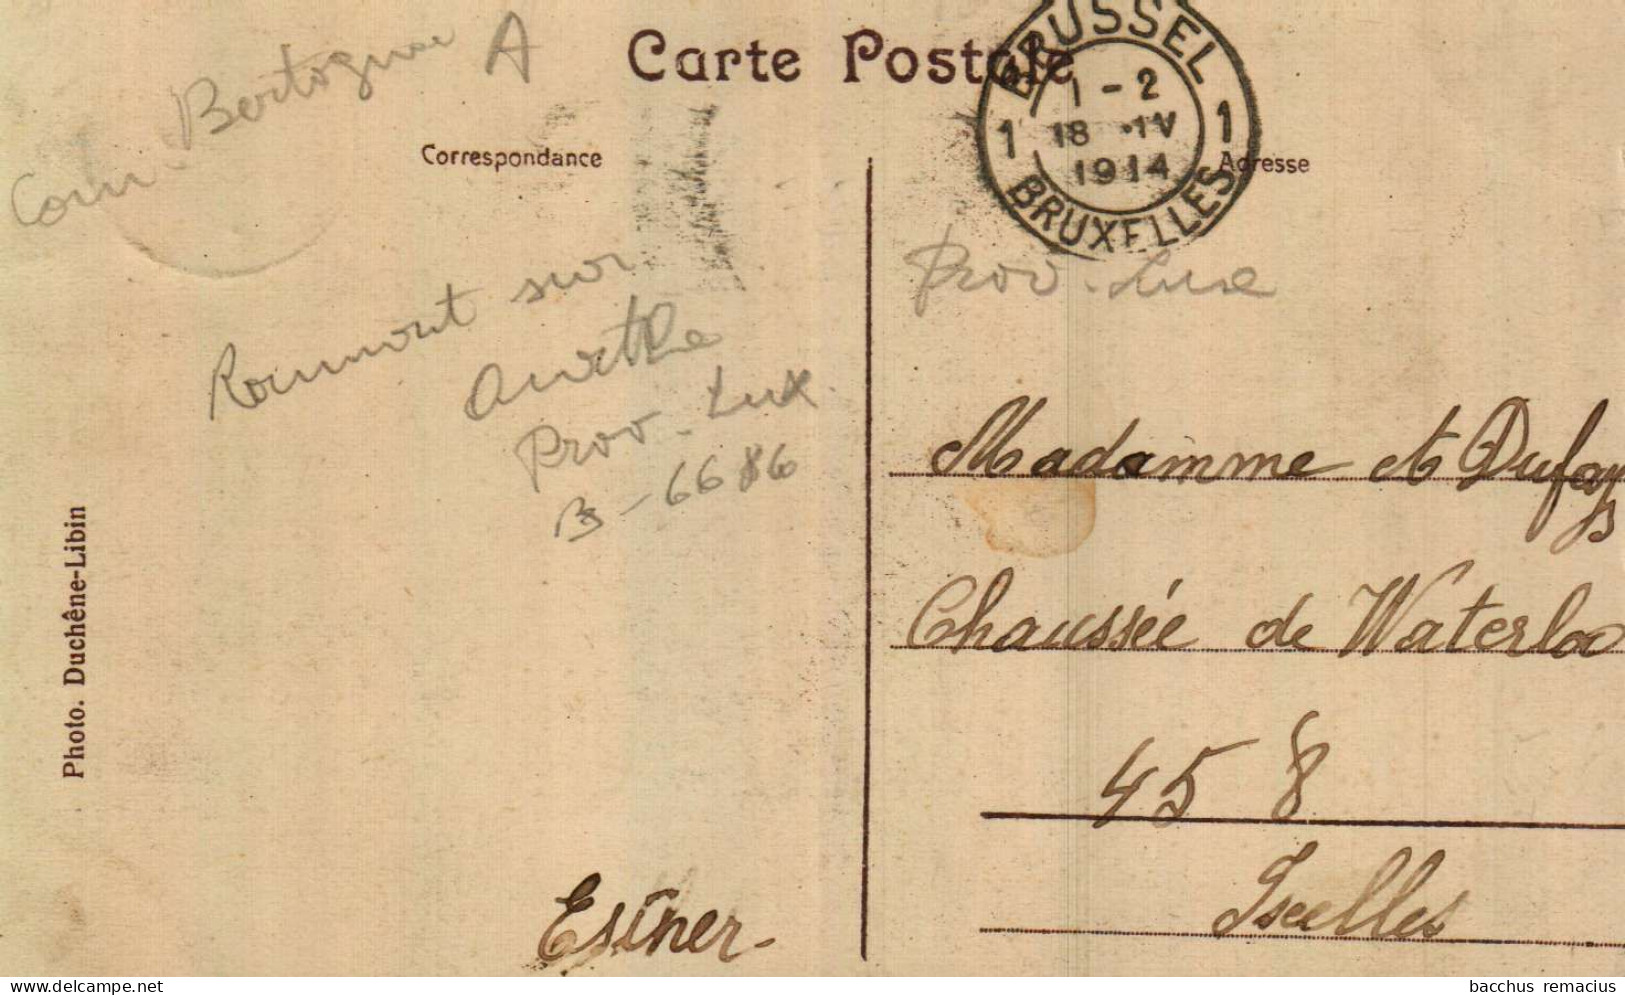 Carte Postale
Correspondance
Adresse
BRUSSEL
1-2
1 18 IV 1
1914
BRUXELLES
Com. Bertogne A
Roumont sur
Ourthe
Prov. Lux
B-6686
Prov. Luxe
Madamme et Dufays
Chaussée de Waterloo
458
Ixelles
Esther
Photo. Duchêne-Libin
www.delcampe.net
bacchus remacius